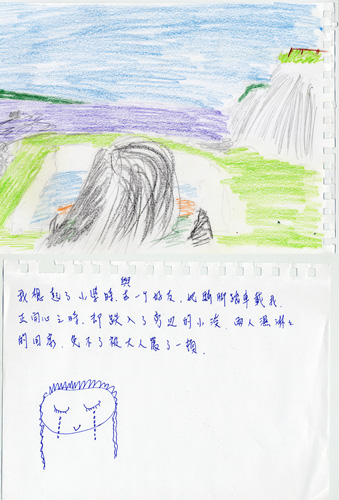 我想起了小学時,與一个好友,她騎腳踏車載我,
正開心之時,卻跌入了旁边的小溝,兩人濕淋淋
的回家,免不了被大人罵了一頓.